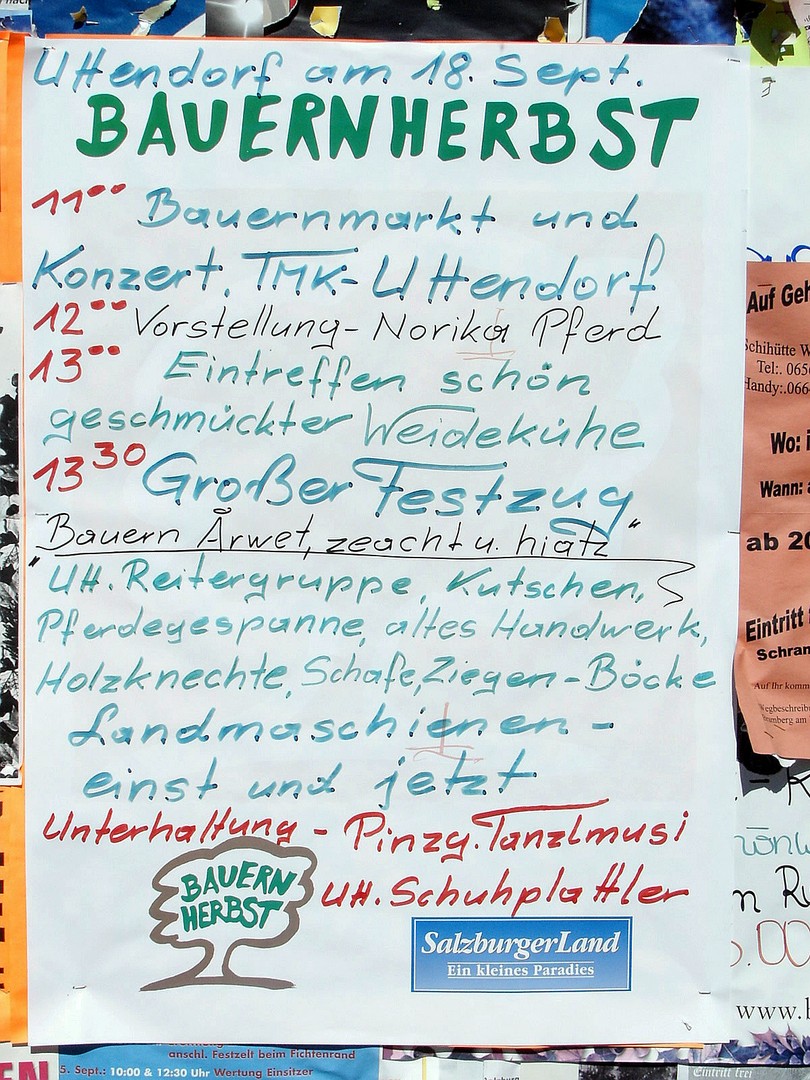 Uttendorf am 18. Sept.
BAUERNHERBST
11⁰⁰ Bauernmarkt und
Konzert, TMK-Uttendorf
12⁰⁰ Vorstellung-Norika Pferd
13⁰⁰ Eintreffen schön
geschmückter Weidekühe
13³⁰ Großer Festzug
"Bauern Årwet, zeacht u. hiatz"
"Utt. Reitergruppe, Kutschen,
Pferdegespanne, altes Handwerk,
Holzknechte, Schafe, Ziegen-Böcke
Landmaschienen-
einst und jetzt
Unterhaltung - Pinzg. Tanzlmusi
Utt. Schuhplattler
BAUERN
HERBST
SalzburgerLand
Ein kleines Paradies
Auf Geh
Schihütte W
Tel.: 065
Handy:.066
Wo: i
Wann: a
ab 20
Eintritt
Schran
Auf Ihr komm
www.b
anschl. Festzelt beim Fichtenrand
5. Sept.: 10:00 & 12:30 Uhr Wertung Einsitzer
Eintritt frei